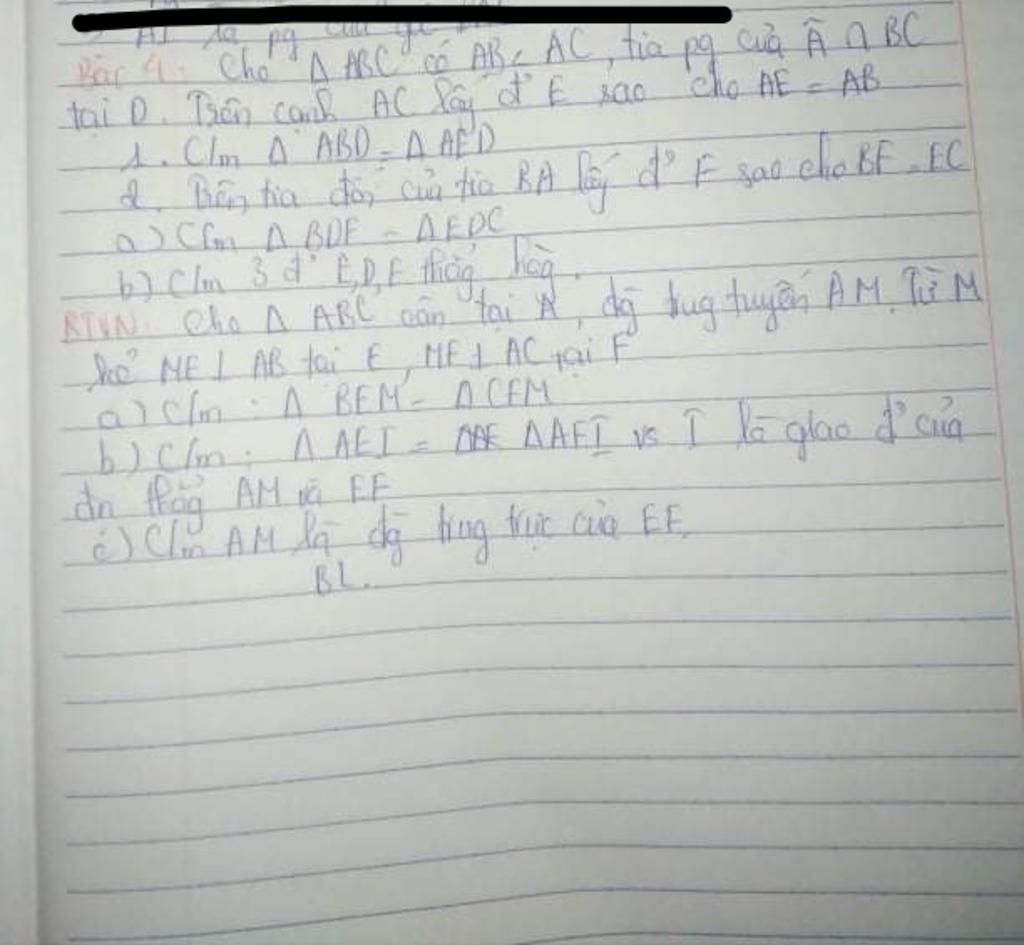 AI là pg của
Bài 4: Cho Δ ABC có AB < AC, tia pg của Â ∩ BC
tại D. Trên cạnh AC lấy đ' E sao cho AE = AB
1. C/m Δ ABD = Δ AED
2. Trên tia đối của tia BA lấy đ' F sao cho BF = EC
a) C/m Δ BDF = Δ EDC
b) C/m 3 đ' E, D, F thẳg hàg.
BTVN: Cho Δ ABC cân tại A, đg trug tuyến AM. Từ M
kẻ ME ⊥ AB tại E, MF ⊥ AC tại F
a) C/m : Δ BEM = Δ CFM
b) C/m : Δ AEI = Δ AFI vs I là giao đ' của
đn thẳg AM và EF
c) C/m AM là đg trug trực của EF.
BL.